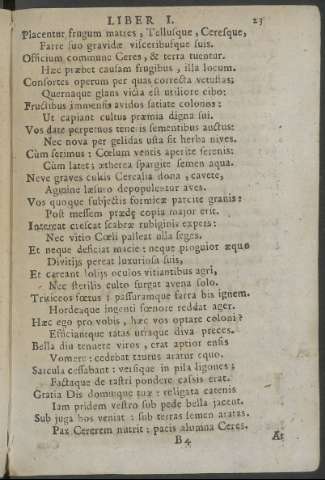 LIBER I. 23
Placentur frugum matres, Tellusque, Ceresque,
Farre suo gravidæ visceribusque suis.
Officium commune Ceres, & terra tuentur.
Hæc præbet causam frugibus, illa locum.
Consortes operum per quas correcta vetustas;
Quernaque glans victa est utiliore cibo:
Fructibus immensis avidos satiate colonos:
Ut capiant cultus præmia digna sui.
Vos date perpetuos teneris sementibus auctus:
Nec nova per gelidas usta sit herba nives.
Cùm serimus: Cœlum ventis aperite serenis:
Cùm latet; ætherea spargite semen aqua.
Neve graves cultis Cerealia dona, cavete,
Agmine læsuro depopulentur aves.
Vos quoque subjectis formicæ parcite granis:
Post messem prædę copia major erit.
Intereat crescat scabræ rubiginis expers:
Nec vitio Cœli palleat ulla seges.
Et neque deficiat macie: neque pinguior æquo
Divitijs pereat luxuriosa suis,
Et careant lolijs oculos vitiantibus agri,
Nec sterilis culto surgat avena solo.
Triticeos fœtus: passuramque farra bis ignem.
Hordeaque ingenti fœnore reddat ager.
Hæc ego pro vobis, hæc vos optate coloni?
Efficiantque ratas utraque diva preces.
Bella diu tenuere viros, erat aptior ensis
Vomere: cedebat taurus aratur equo.
Sarcula cessabant: versique in pila ligones;
Factaque de rastri pondere cassis erat.
Gratia Dis domuique tuæ: religata catenis
Iam pridem vestro sub pede bella jacent.
Sub juga bos veniat: sub terras semen aratas.
Pax Cererem nutrit: pacis alumna Ceres.
B 4 At